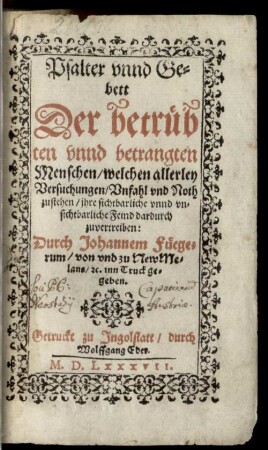 Psalter vnnd Ge-
bett
Der betrüb
ten vnnd betrangten
Menschen/ welchen allerley
Versuchungen/ Vnfahl vnd Noth
zustehen/ jhre sichtbarliche vnnd vn-
sichtbarliche Feind dardurch
zuvertreiben:
Durch Johannem Füege-
rum/ von vnd zu New Me-
lans/ ꝛc. inn Truck ge-
geben.
Getruckt zu Ingolstatt/ durch
Wolffgang Eder.
M. D. LXXXVII.